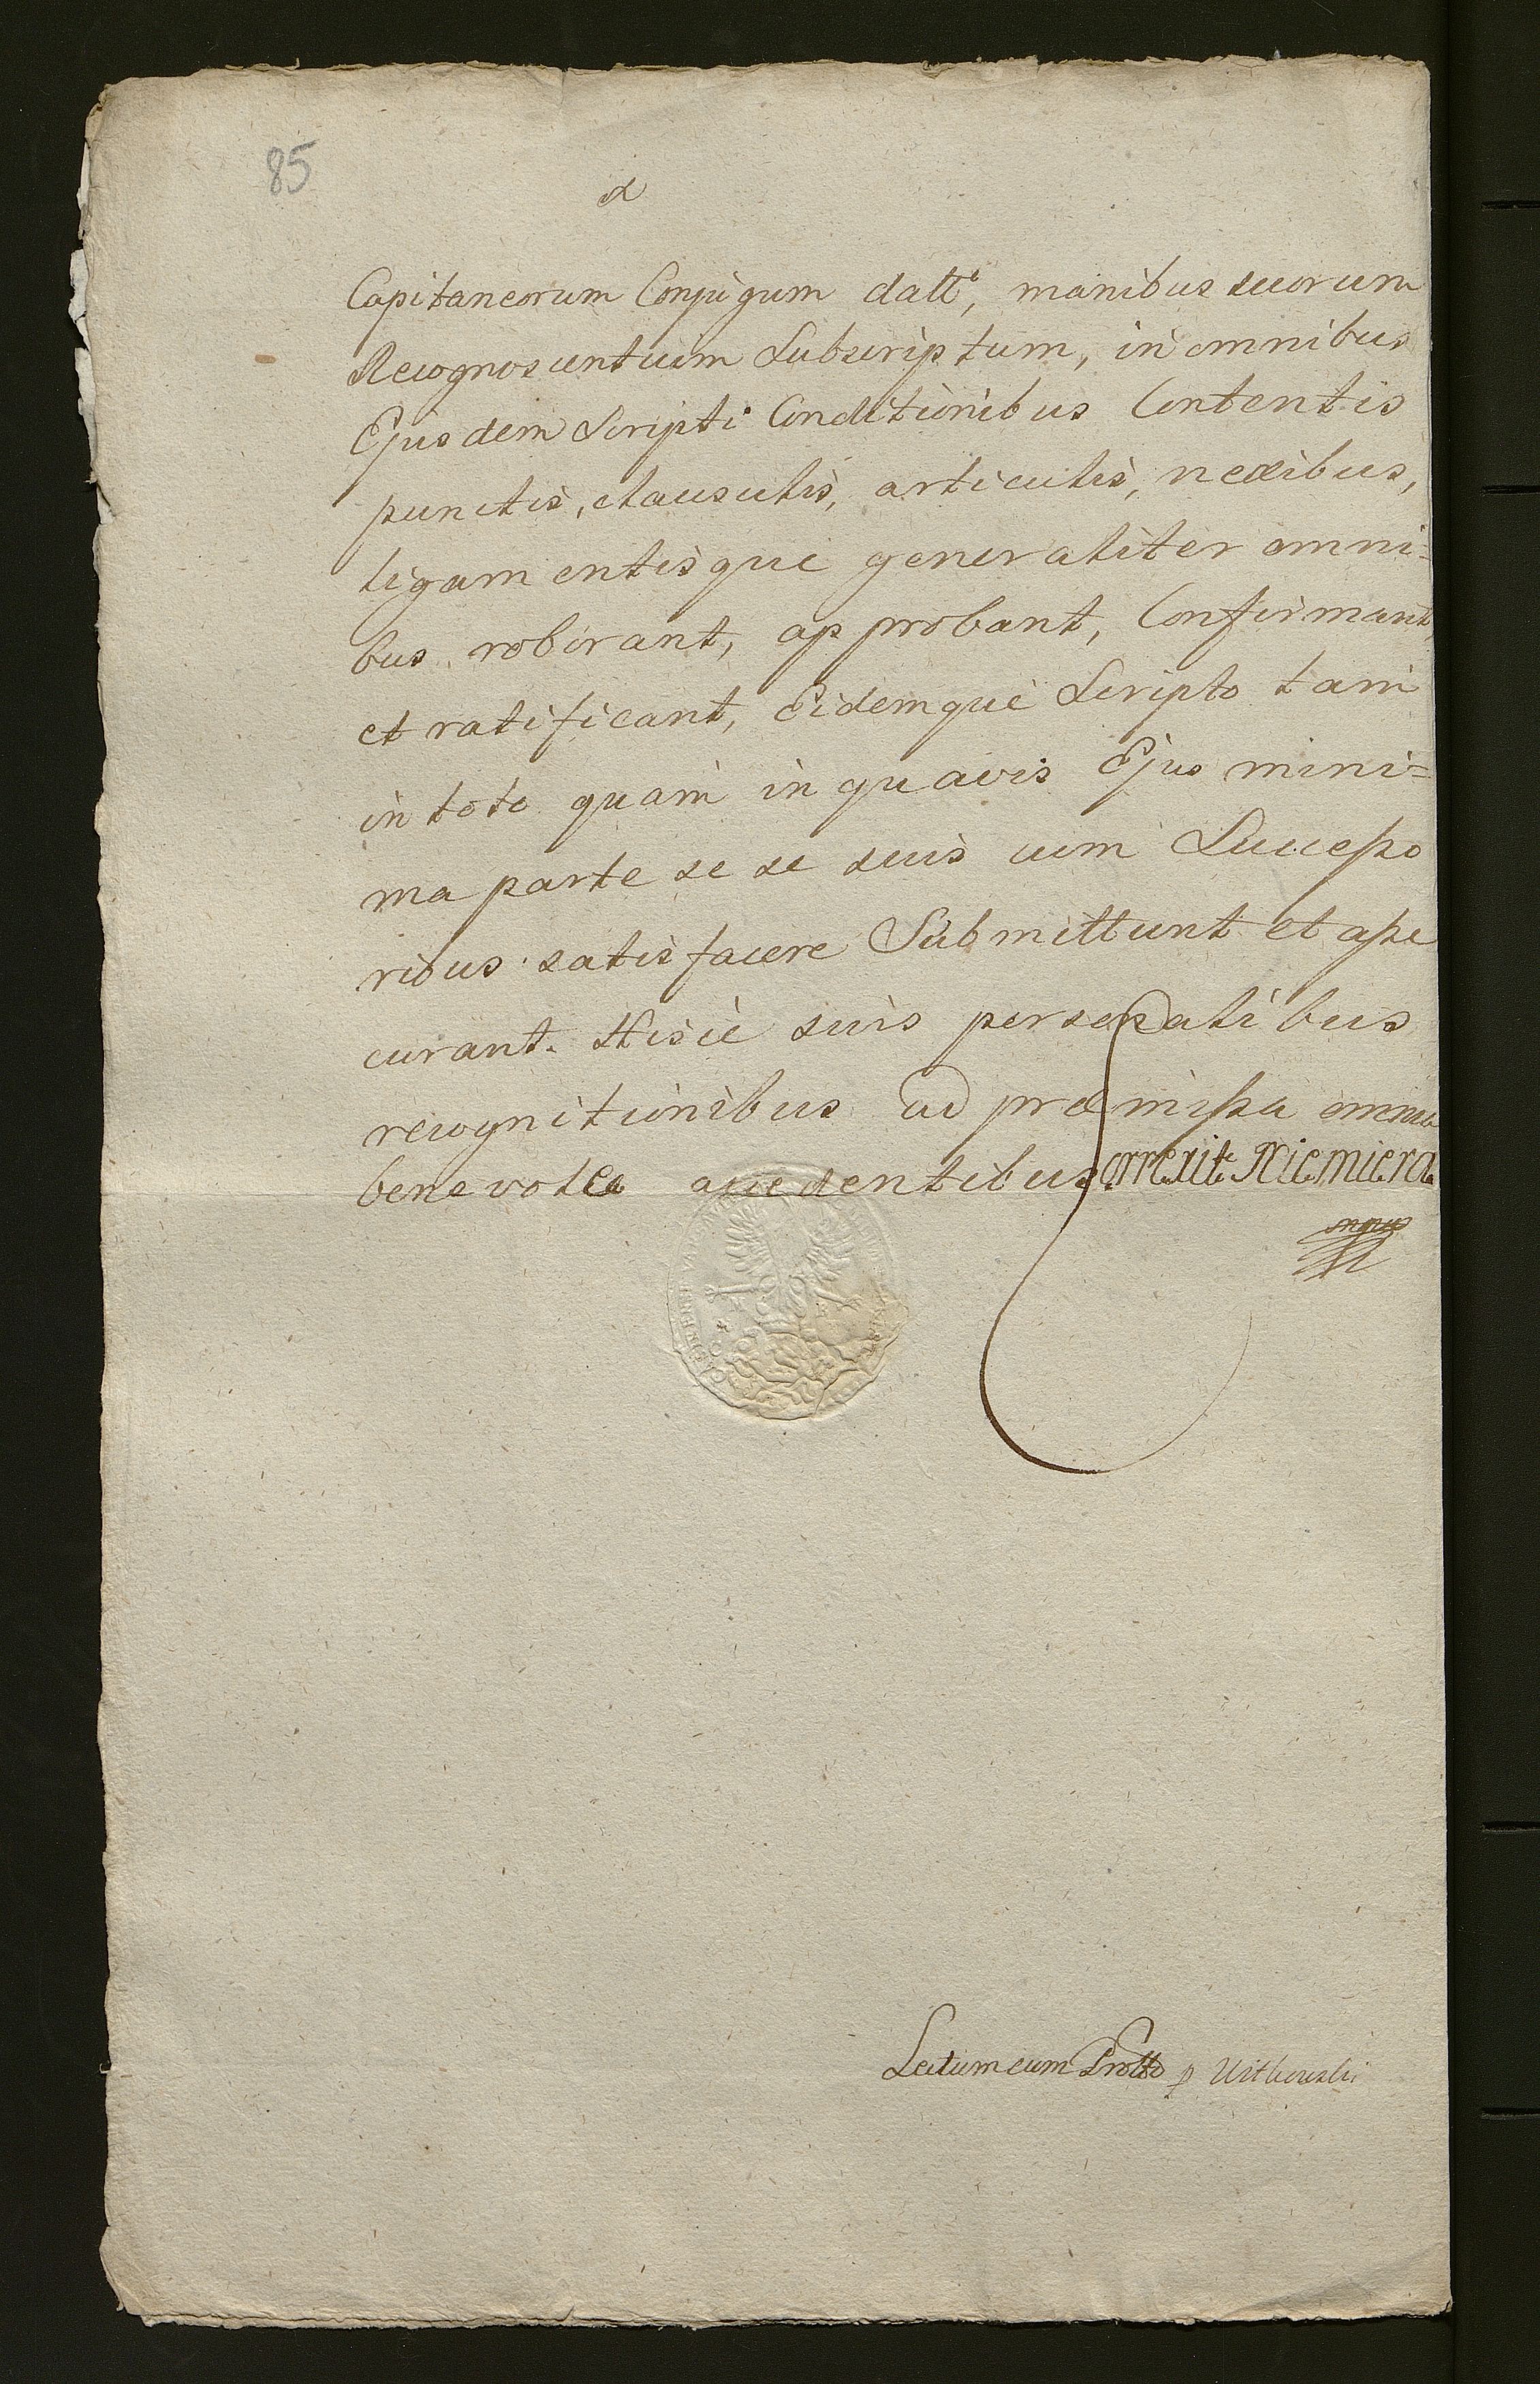 85
Capitaneorum Conjugum datt, manibus suorum
Recognoscentium Subscriptum, in omnibus
Ejusdem Scripti Conditionibus Contentis
punctis, clausulis, articulis, nexibus,
ligamentisque generaliter omni=
bus roborant, approbant, Confirmant,
et ratificant, Eidemque Scripto tam
in toto quam in quavis Ejus mini=
ma parte se se suis cum Successo
ribus satisfacere Submittunt et asse
curant. Hisce suis personalibus
recognitionibus ad præmissa omnia
benevole accedentibus Correxit Niemiera
mpp
Lectum cum Protto p Witkowski